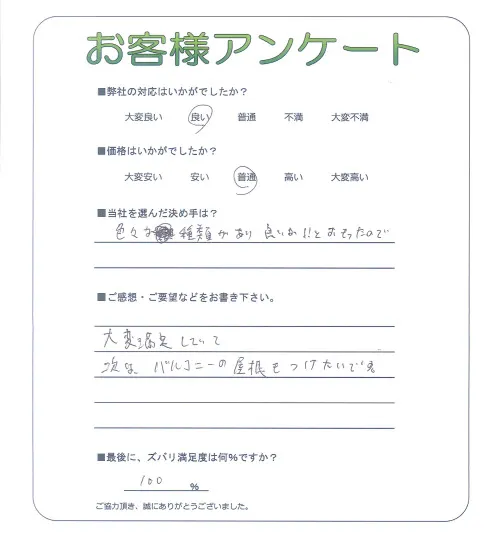 お客様アンケート
■弊社の対応はいかがでしたか？
大変良い 良い 普通 不満 大変不満
■価格はいかがでしたか？
大変安い 安い 普通 高い 大変高い
■当社を選んだ決め手は？
色々な 種類があり 良いな!!とおもったので
■ご感想・ご要望などをお書き下さい。
大変満足していて
次は、バルコニーの屋根もつけたいです
■最後に、ズバリ満足度は何％ですか？
100 %
ご協力頂き、誠にありがとうございました。